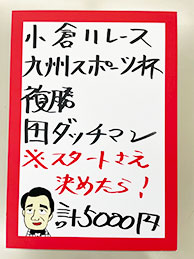 小倉11レース
九州スポーツ杯
複勝
田ダッチマン
※スタートさえ
決めたら!
計5000円